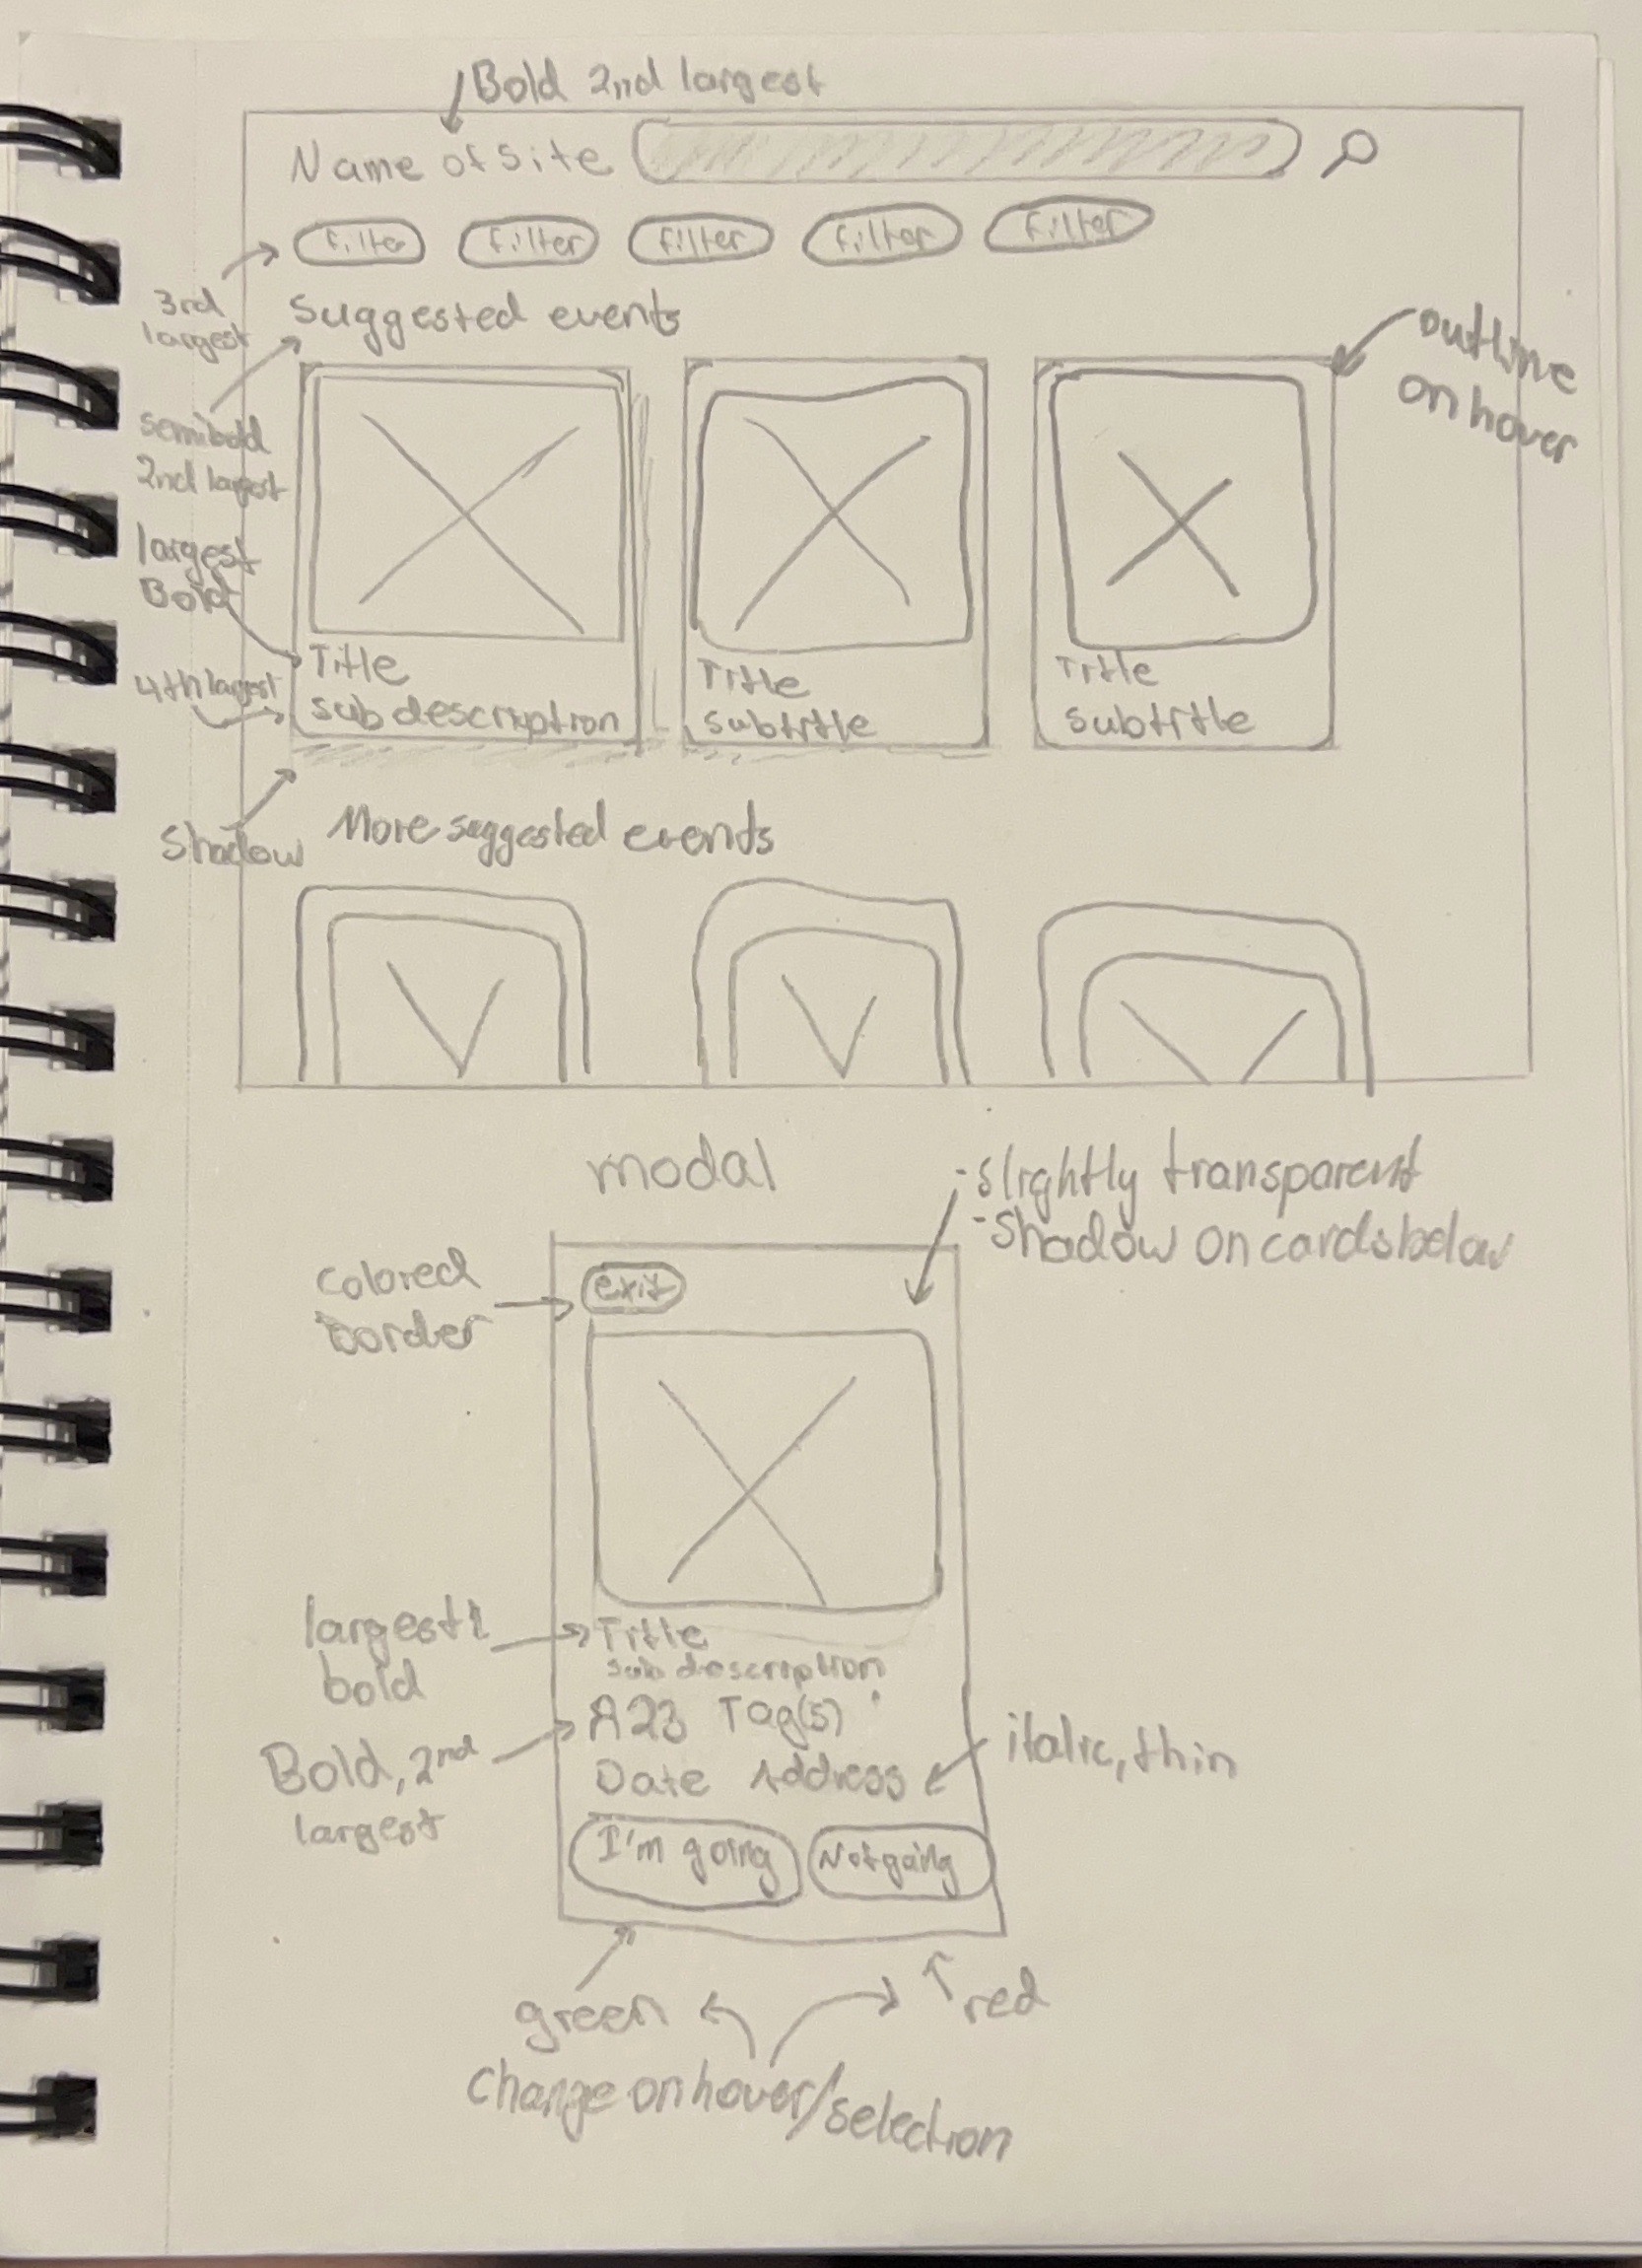 Bold 2nd largest
Name of Site
filter filter filter filter filter
3rd
largest
Suggested events
outline
on hover
semibold
2nd largest
largest
Bold
4th largest
Title
sub description
Title
subtitle
Title
subtitle
Shadow
More suggested events
modal
-slightly transparent
-Shadow on cards below
colored
border
exit
largest
bold
Title
sub description
A23 Tag(s)
Bold, 2nd
largest
Date Address
italic, thin
I'm going Not going
green
red
Change on hover/selection